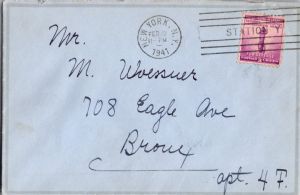 NEW YORK, N.Y.
FEB
PM
1941
STATION Y
Mr.
M. Woessner
708 Eagle Ave
Bronx
apt. 4 F.